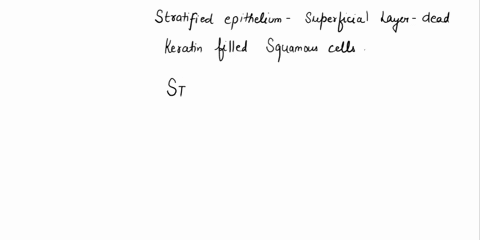 Stratified epithelium - Superficial Layer - dead
Keratin filled Squamous cells.
ST